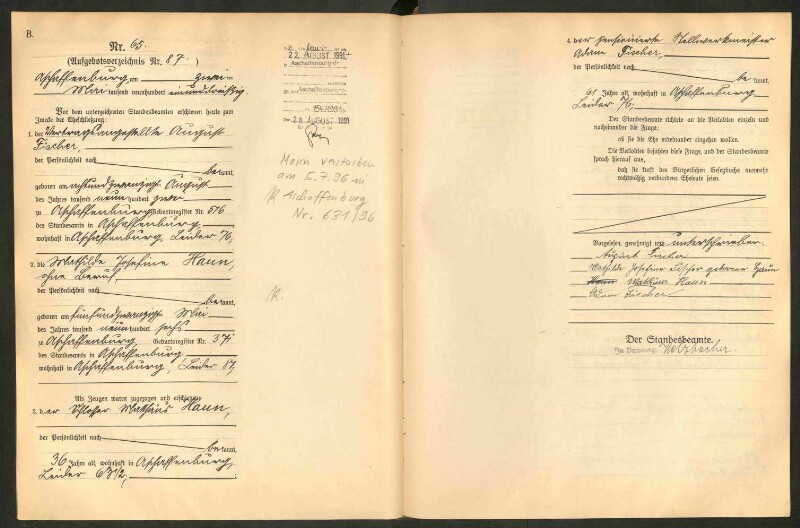 B.
Nr. 65.
(Aufgebotsverzeichnis Nr. 87.)
Aschaffenburg, am zwei
Mai tausend neunhundert einunddreißig
Vor dem unterzeichneten Standesbeamten erschienen heute zum
Zwecke der Eheschließung:
1. der Vertragsangestellte August
Fischer,
der Persönlichkeit nach
bekannt,
geboren am achtundzwanzigst August
des Jahres tausend neunhundert zwei
zu Aschaffenburg Geburtsregister Nr. 516
des Standesamts in Aschaffenburg,
wohnhaft in Aschaffenburg, Leider 76,
2. die Mathilde Josefine Haun,
ohne Beruf,
der Persönlichkeit nach
bekannt,
geboren am fünfundzwanzigst Mai
des Jahres tausend neunhundert sechs
zu Aschaffenburg, Geburtsregister Nr. 371
des Standesamts in Aschaffenburg,
wohnhaft in Aschaffenburg, Leider 87,
Als Zeugen waren zugezogen und erschienen:
3. der Schlosser Matthäus Haun,
der Persönlichkeit nach
bekannt,
36 Jahre alt, wohnhaft in Aschaffenburg
Leider 63 1/2,
22. AUGUST 1991
Aschaffenburg
28. AUGUST 1991
Mann verstorben
am 5.7.96 in
Aschaffenburg
Nr. 631/96
4. der pensionierte Stellwerkmeister
Adam Fischer,
der Persönlichkeit nach
bekannt,
61 Jahre alt, wohnhaft in Aschaffenburg
Leider 76,
Der Standesbeamte richtete an die Verlobten einzeln und
nacheinander die Frage:
ob sie die Ehe miteinander eingehen wollen.
Die Verlobten bejahten diese Frage, und der Standesbeamte
sprach hierauf aus,
daß sie kraft des Bürgerlichen Gesetzbuchs nunmehr
rechtmäßig verbundene Eheleute seien.
Vorgelesen, genehmigt und unterschrieben.
August Fischer
Mathilde Josefine Fischer geborene Haun
Haun Matthäus Haun
Adam Fischer
Der Standesbeamte.
In Vertretung: Holzbacher.